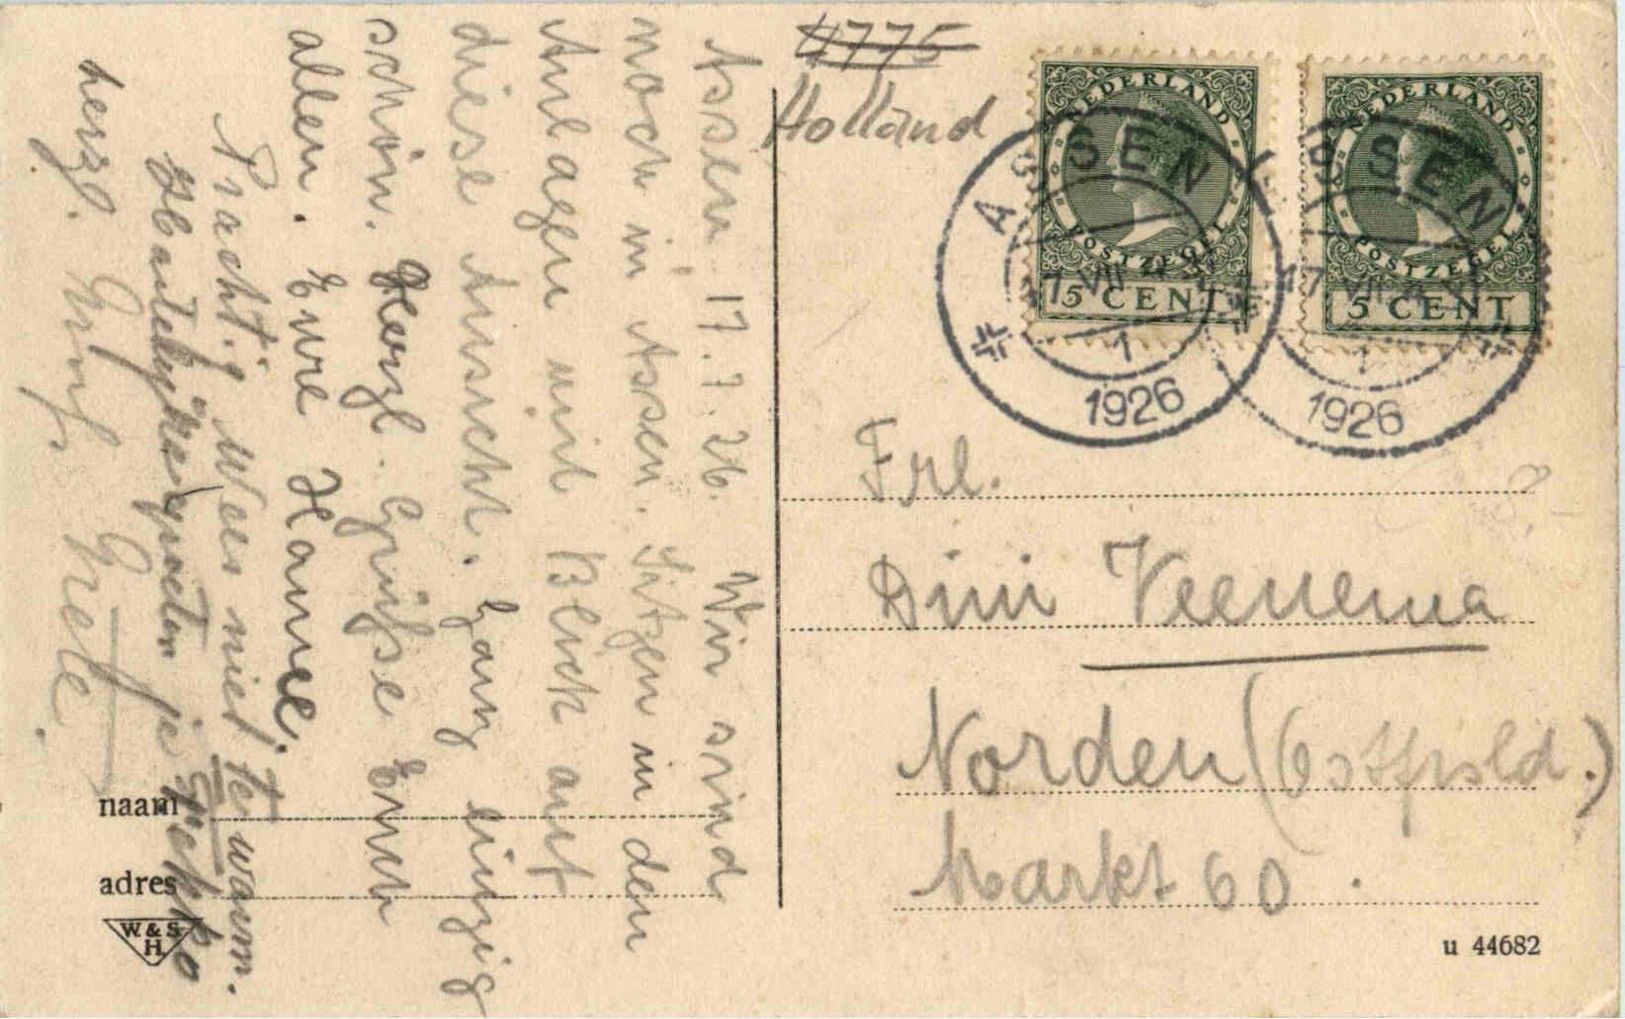 Assen 17.7.26. Wir sind
noch in Assen. Sitzen in den
Anlagen mit Blick auf
diese Ansicht. Ganz einzig
schön. Herzl. Grüße Euch
allen. Eure Hanne.
Prachtig Weer niet te warm.
Hartelijke groeten je
herzl. Gruß, Grete.
4775
Holland
NEDERLAND
POSTZEGEL
5 CENT
NEDERLAND
POSTZEGEL
5 CENT
ASSEN
17 VII
1
1926
ASSEN
17 VII
1
1926
Frl.
Dini Veenema
Norden (Ostfriesld.)
Markt 60.
naam
adres
W. & S.
H
u 44682